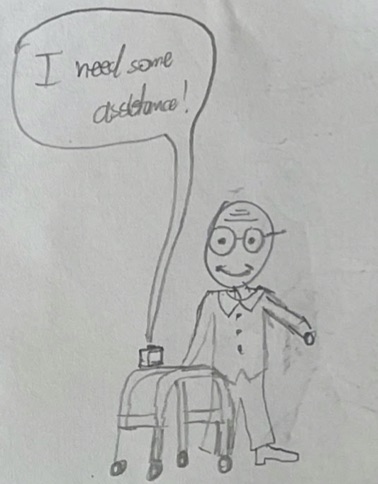 I need some
assistance!